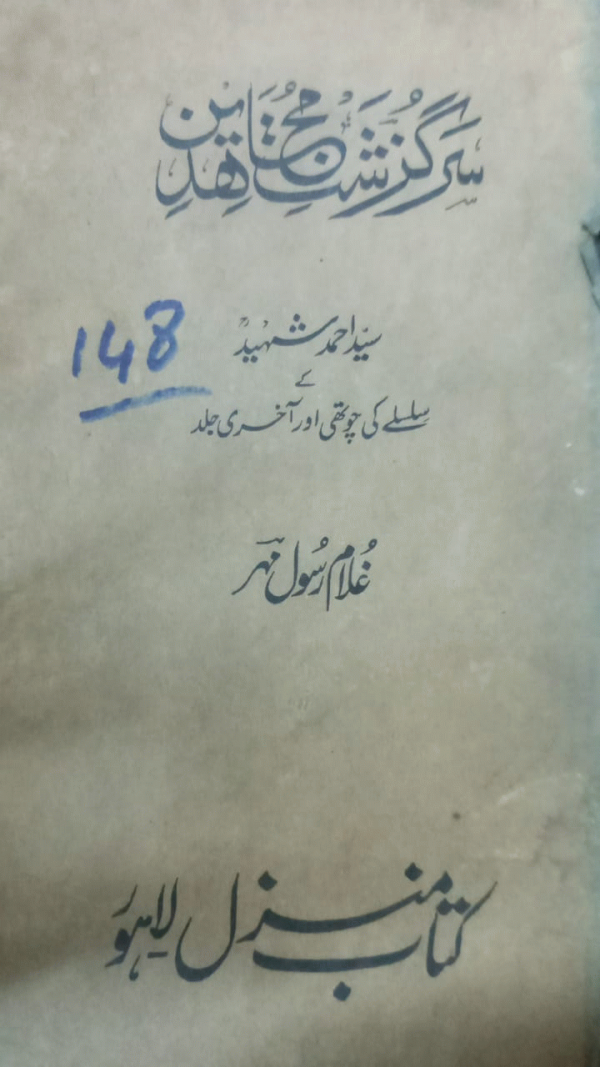 سرگزشتِ مجاہدین
سید احمد شہیدؒ
کے
سلسلے کی چوتھی اور آخری جلد
148
غلام رسول مہر
کتاب منزل لاہور